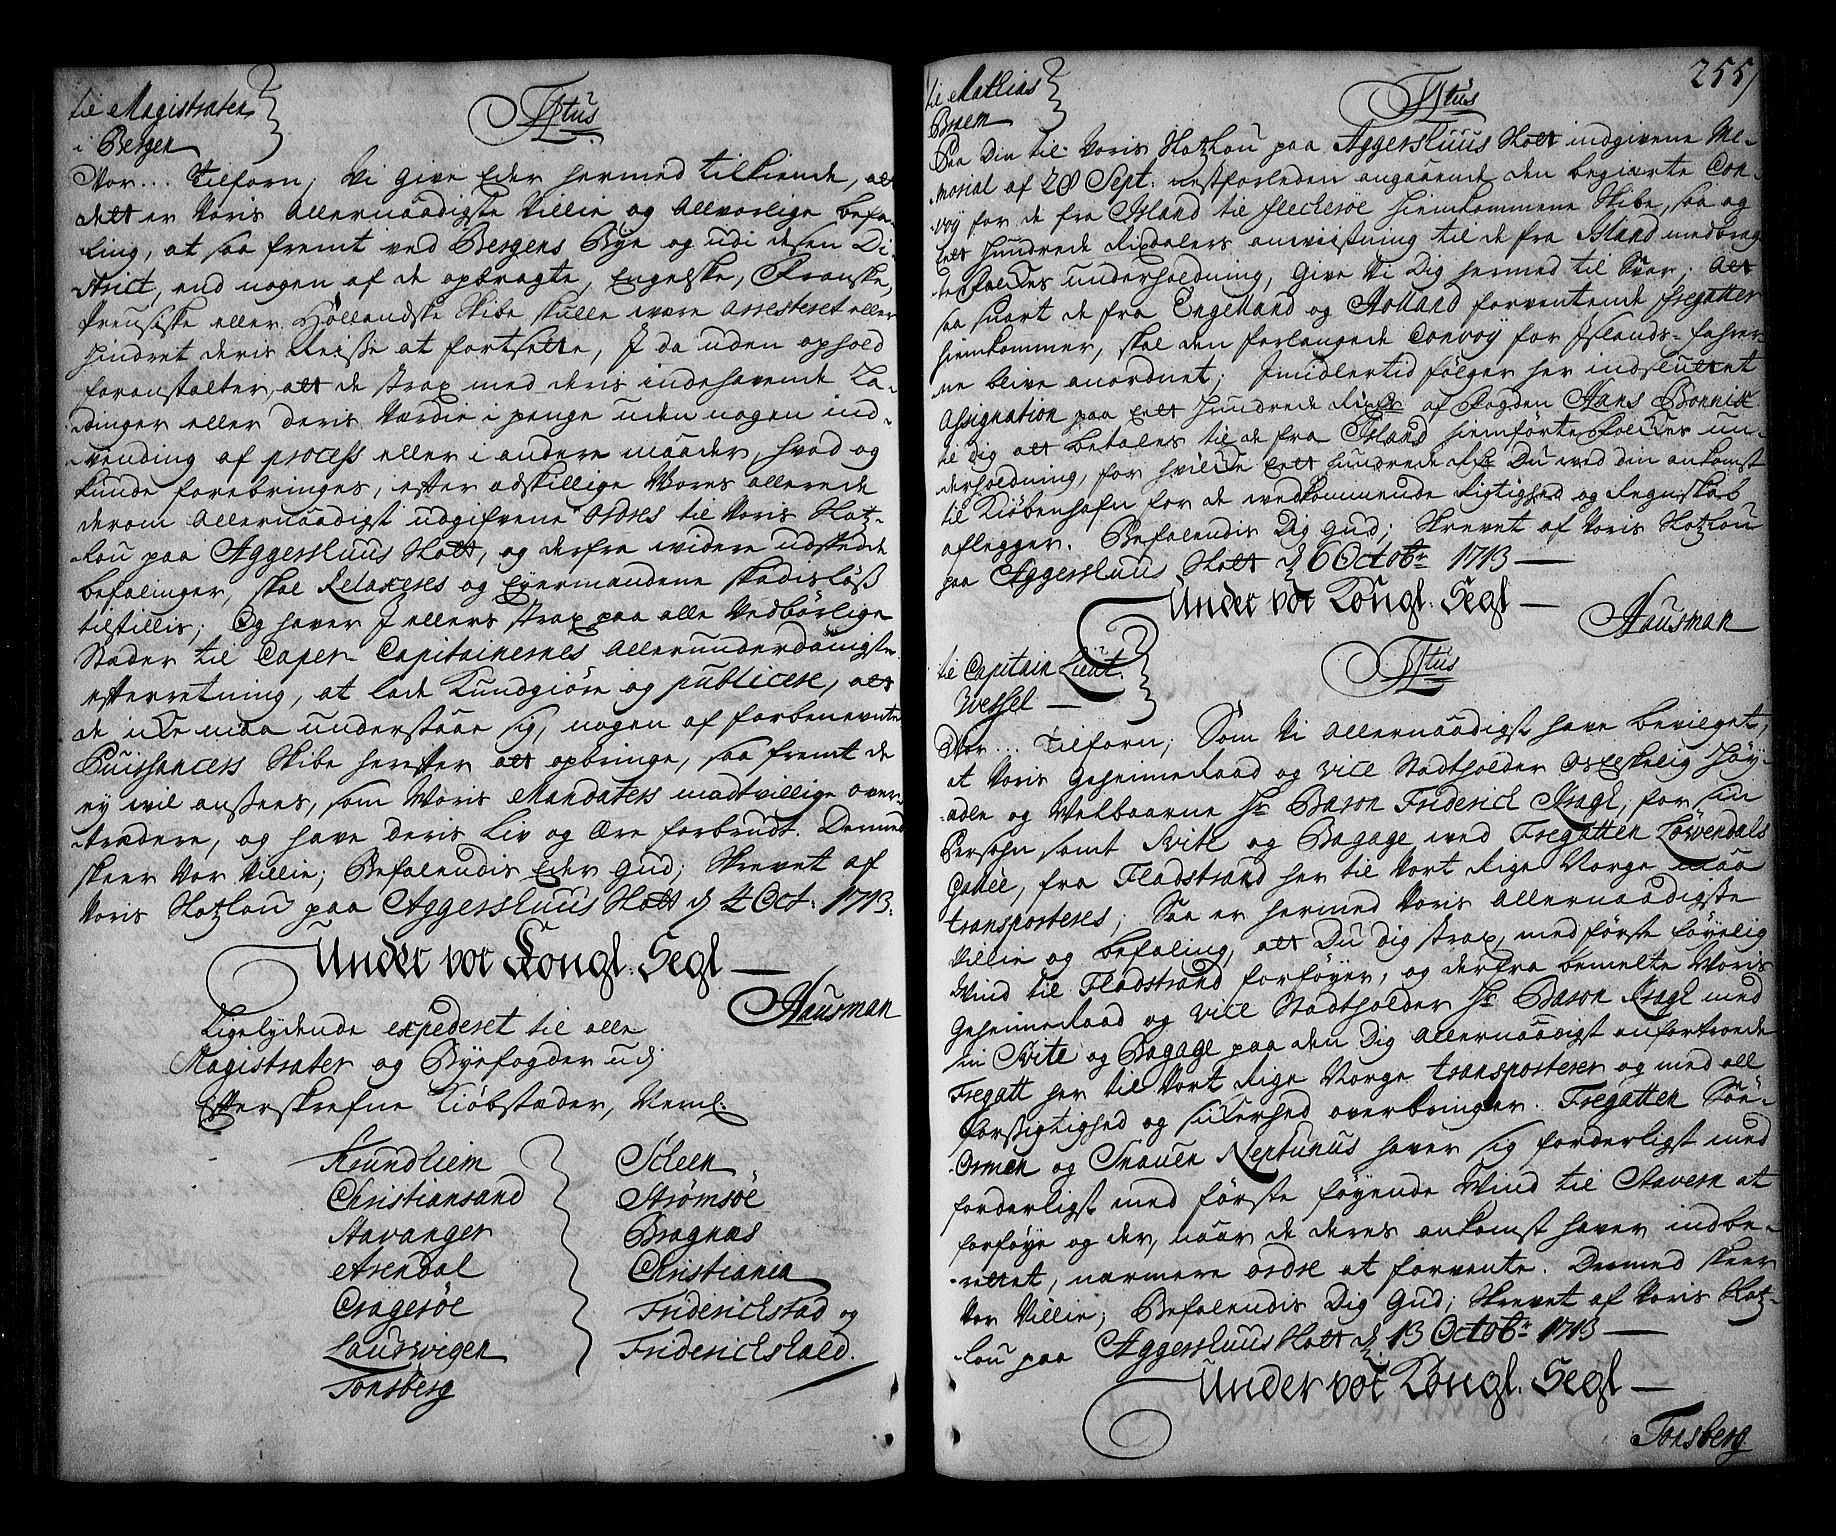 til Magistraten
i Bergen
Ttus
Vor... Tilforn; Wi give Eder hermed tilkiende, att
dett er Voris Allernaadigste Villie og Allvorlige befa-
ling, at saa fremt ved Bergens Bye og udi dessen Di-
strict, end nogen af de opbragte, Engelske, Franske,
Preusiske eller Hollandske Skibe skulle være arresteret eller
hindret deris Reisse at fortsette, I da uden ophold
foranstalter, att de strax med deris indehavende La-
dinger eller deris Værdie i penge uden nogen ind-
vending af process eller i andere maader, hvad og
kunde forebringes, efter adskillige Vores allerede
derom Allernaadigst udgifvene ordres til Voris Slotz-
lou paa Aggershuus Slott, og derfra widere udstedde
befalinger, skal Relaxeres og Eyermandene skadisløß
tilstillis; Og haver I ellers strax paa alle Vedbørlige
Stæder til Caper Capitainernes Allerunderdanigste
efterretning, at lade Kundgiøre og publicere, att
de icke maa understaae sig, nogen af forbenevnte
Puissancers Skibe herefter att opbringe, saa fremt de
ey wil ansees, som Woris Mandaters modtvillige over-
trædere, og have deris Liv og Ære forbrudt. Dermed
skeer Vor Villie; Befalendis Eder Gud; Skrevet af
Voris Slotzlou paa Aggershuus Slott d 4 Oct. 1713.
Under vor Kongl. Segl
Hausman
Ligelydende expederet til alle
Magistrater og Byefogder udj
Efterskrefne Kiøbstæder, Neml:
Trundhiem
Christiansand
Stavanger
Arendal
Cragerøe
Laurwigen
Tonsberg
Scheen
Strømsøe
Bragnæs
Christiania
Friderichstad og
Friderichshald.
255
til Mathias
Braem
Ttus
Paa Din til Voris Slotzlou paa Aggershuus Slott indgivene Me-
morial af 28 Sept. nestforleden angaaende den begierte Con-
voy for de fra Island til fleckerøe hiemkommene Skibe, saa og
Ett Hundrede Rixdalers anviisning til de fra Island medbrag
te Folckes underholdning, Give Wi Dig hermed til Svar, Att
saa snart de fra Engelland og Holland forventende fregatter
hiemkommer, skal den forlangede Convoy for Islands-fahrer-
ne blive anordnet; Imidlertid følger her indsluttet
Assignation paa Ett Hundrede Rixdr af Fogden Hans Bonnix
til dig att betales til de fra Island hiemførte Folckes un-
derholdning, for hvilcke Ett hundrede rdr Du wed din ankomst
til Kiøbenhafn for de wedkommende Rigtighed og Regnskab
aflegger. Befalendis Dig Gud; Skrevet af Voris Slotzlou
paa Aggershuus Slott d 6 Octobr 1713
Under vor Kongl. Segl
Hausman
til Capitain Lieut.
Wessel
Ttus
Vor... Tilforn; Som Wi Allernaadigst have bevilget,
at Voris Geheimeraad og Vice Stadtholder Oxcskelig Høy-
ædle og Velbaarne Hr Baron Friderich Kragh, for sin
Persohn samt Svite og Bagage wed Fregatten Løvendals
Gallée, fra Fladstrand her til Vort Rige Norge maa
transporteres; Saa er hermed Voris Allernaadigste
Villie og befaling, att Du dig strax, med første føyelig
Wind til Fladstrand forføyer, og derfra bemelte Woris
Geheimeraad og Vice Stadtholder Hr Baron Kragh med
sin Svite og Bagage paa den Dig Allernaadigst anfortroede
Fregatt her til Vort Rige Norge transporterer og med all
forsigtighed og sickerhed overbringer. Fregatten Søe-
Ormen og Snauen Neptunus haver sig forderligst med
forderligst med første føyende Wind til Stavern at
forføye og der, naar de deres ankomst haver indbe-
rettet, nærmere ordre at forvente. Dermed skeer
Vor Villie; Befalendis Dig Gud; Skrevet af Voris Slotz-
lou paa Aggershuus Slott d. 13 Octobr 1713
Under vor Kongl. Segl
Tonsberg